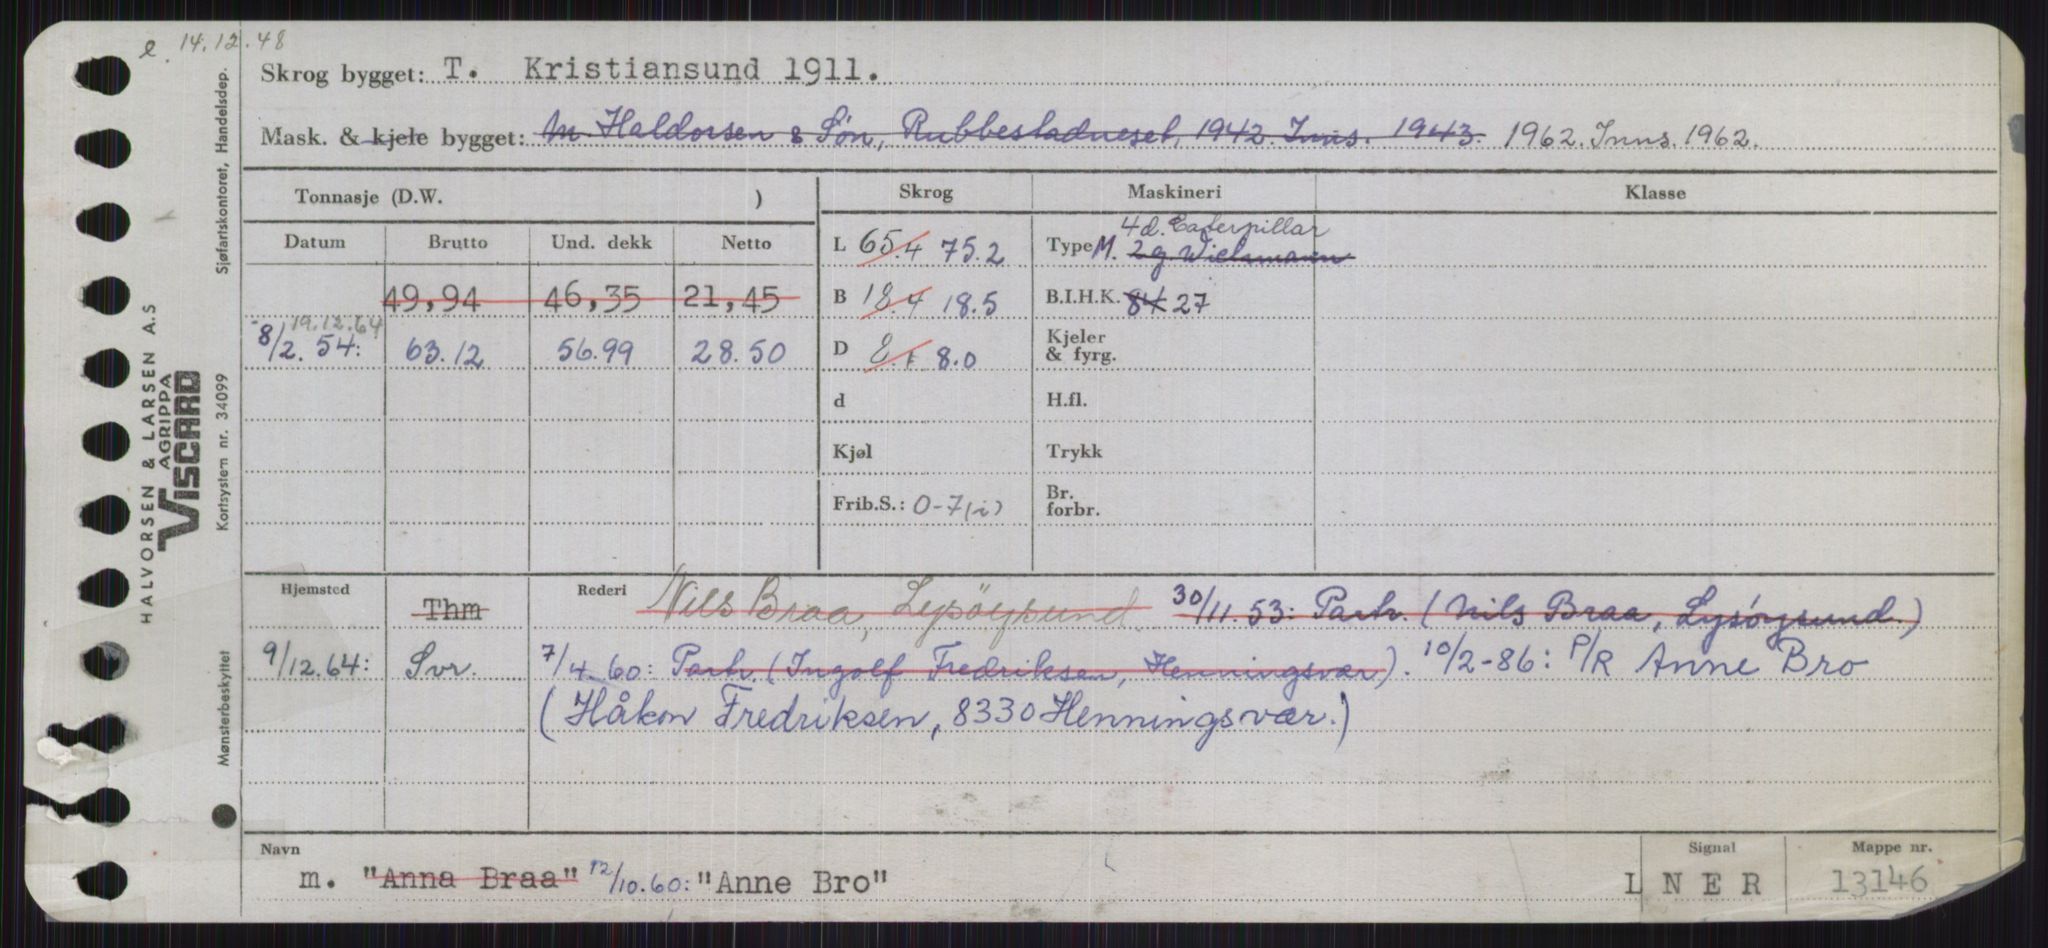 e. 14.12.48
Skrog bygget: T. Kristiansund 1911.
Mask. & kjele bygget: M. Haldorsen & Søn, Rubbestadneset, 1942. Inns. 1943. 1962. Inns. 1962.
Tonnasje (D.W. )
Skrog
Maskineri
Klasse
Datum
Brutto
Und. dekk
Netto
L 65.4 75.2
4d. Caterpillar
Type M. 2g. Wichmann
49,94 46,35 21,45
B 18.4 18.5
B.I.H.K. 84 27
19.12.64
8/2. 54: 63.12 56.99 28.50
D 8.1 8.0
Kjeler
& fyrg.
d
H.fl.
Kjøl
Trykk
Frib.S.: 0-7(i)
Br.
forbr.
Hjemsted
Thm
Rederi
Nils Braa, Lysöysund. 30/11.53: Partr. (Nils Braa, Lysöysund.)
9/12.64: Svr. 7/4.60: Partr. (Ingolf Fredriksen, Henningsvær). 10/2-86: P/R Anne Bro
(Håkon Fredriksen, 8330 Henningsvær.)
Navn
m. "Anna Braa" 12/10.60: "Anne Bro"
Signal
L N E R
Mappe nr.
13146
HALVORSEN & LARSEN A.S
AGRIPPA
VISCARD
Sjøfartskontoret, Handelsdep.
Kortsystem nr. 34099
Mønsterbeskyttet